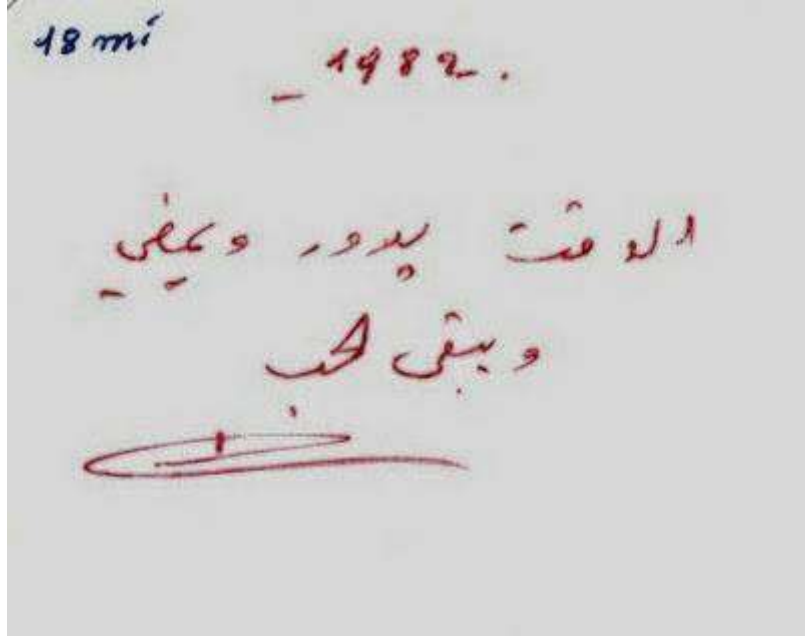 18 mi
- 1982.
الوقت يدور ويمضي
ويبقى الحب